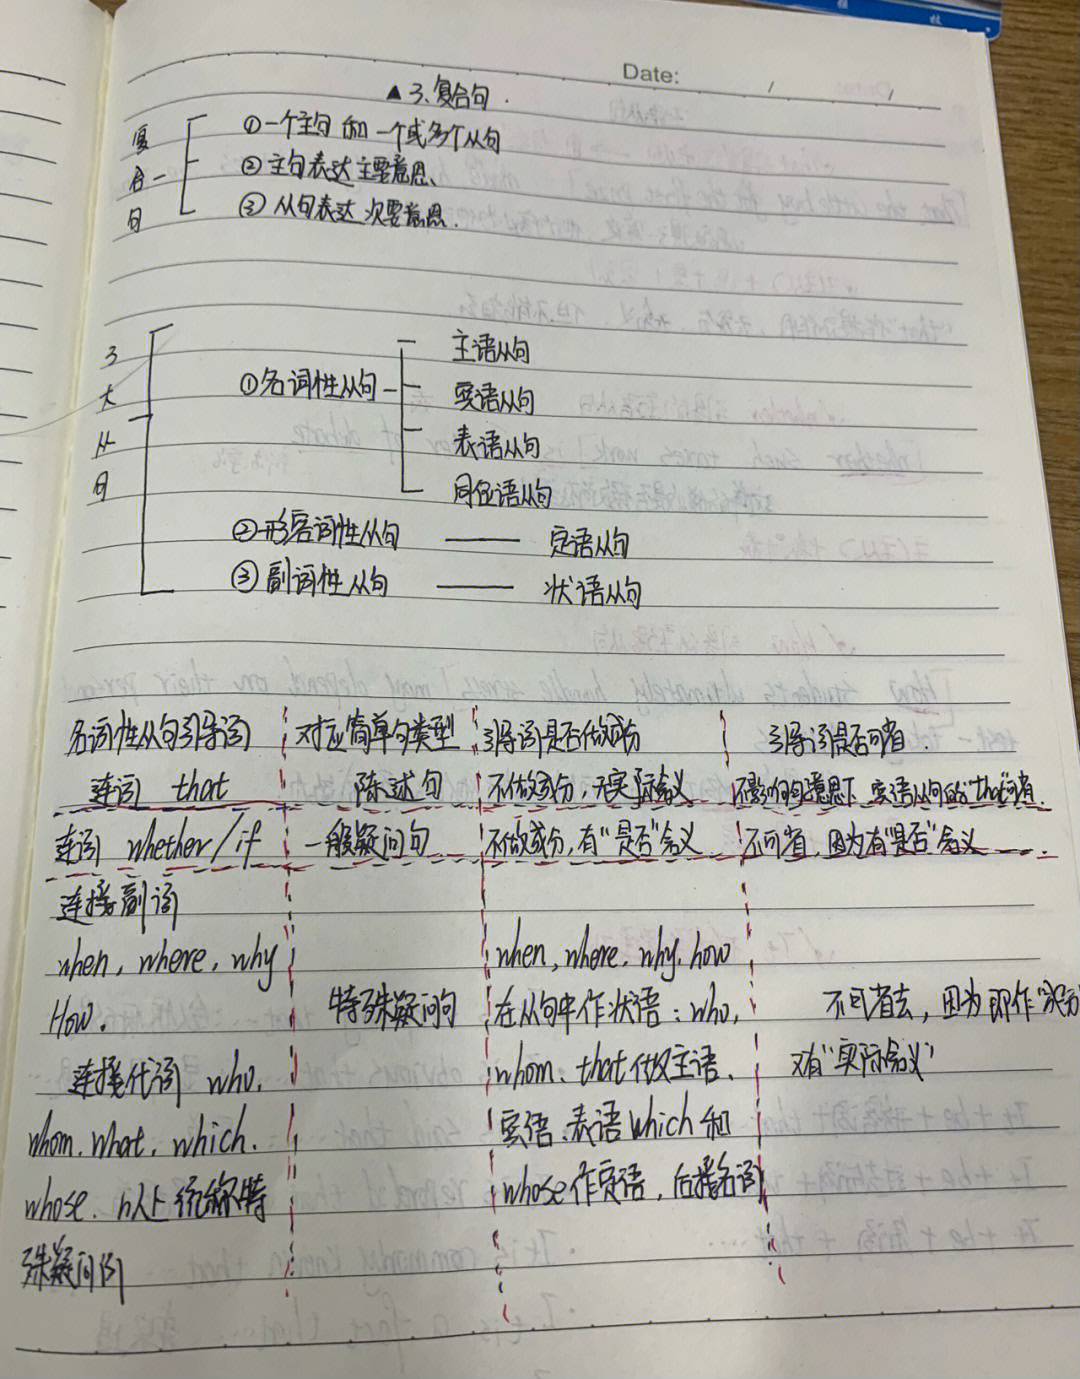 Date: / /
▲ 3、复合句.
复合句
①一个主句 和 一个或多个从句
②主句表达主要意思、
③从句表达 次要意思.
3大从句
①名词性从句
主语从句
宾语从句
表语从句
同位语从句
②形容词性从句 —— 定语从句
③副词性从句 —— 状语从句
名词性从句引导词 对应简单句类型 引导词是否做成份 引导词是否可省.
连词 that 陈述句 不做成份,无实际含义 不影响句意思下 宾语从句的"that"可省.
连词 whether/if 一般疑问句 不做成份,有"是否"含义 不可省,因为有"是否"含义
连接副词
when, where, why when, where, why, how
How. 特殊疑问句 在从句中作状语:who, 不可省去,因为即作"成份"
连接代词 who, whom、that做主语、 又有"实际含义"
whom, what, which. 宾语、表语 which 和
whose. 以上统称特 whose作定语,后接名词
殊疑问词